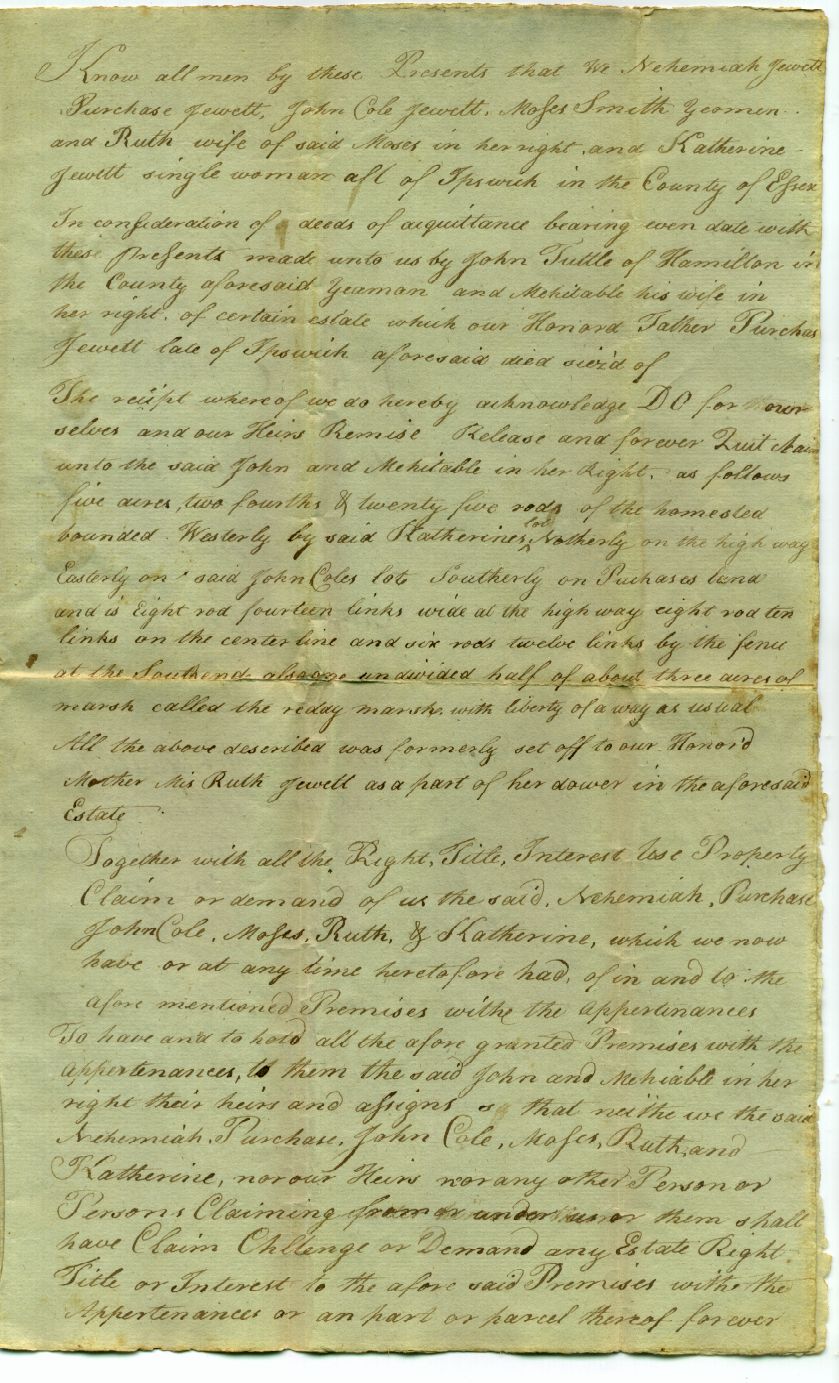 Know all men by these Presents that We Nehemiah Jewett
Purchase Jewett, John Cole Jewett, Moses Smith Yeomen
and Ruth wife of said Moses in her right, and Katherine
Jewett single woman all of Ipswich in the County of Essex
In consideration of a deeds of acquittance bearing even date with
these Presents made unto us by John Tuttle of Hamilton in
the County aforesaid Yeoman and Mehitable his wife in
her right, of certain estate which our Honord Father Purchas
Jewett late of Ipswich aforesaid died siezd of
The reciipt whereof we do hereby acknowledge DO for our
selves and our Heirs Remise Release and forever Quit Claim
unto the said John and Mehitable in her Right, as follows
five acres, two fourths & twenty five rods of the homested
bounded Westerly by said Katherines lot Notherly on the high way
Easterly on said John Coles lots Southerly on Puchases land
and is Eight rod fourteen links wide at the high way eight rod ten
links on the center line and six rods twelve links by the fence
at the South end also one undivided half of about three acres of
marsh called the reday marsh, with liberty of a way as usual
All the above described was formerly set off to our Honor'd
Mother Mis Ruth Jewett as a part of her dower in the aforesaid
Estate
Together with all the Right, Title, Interest Use Property
Claim or demand of us the said, Nehemiah, Purchase
John Cole, Moses, Ruth, & Katherine, which we now
have or at any time heretofore had, of in and to the
afore mentioned Premises withe the appertenances
To have and to hold all the afore granted Premises with the
appertenances, to them the said John and Mehiable in her
right their heirs and assigns so that neithe we the said
Nehemiah, Purchase, John Cole, Moses, Ruth, and
Katherine, nor our Heirs nor any other Person or
Persons Claiming from or under us or them shall
have Claim Chllenge or Demand any Estate Right
Title or Interest to the afore said Premises with the
Appertenances or an part or parcel thereof forever